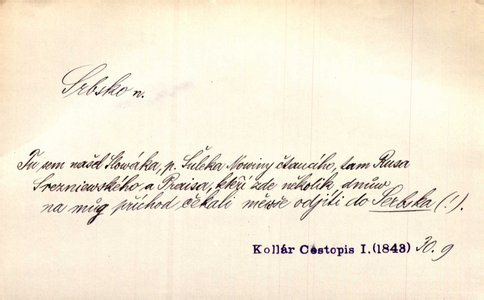 Srbsko n.
Tu sem našel Slowáka, p. Šuleka Nowiny čtaucího, tam Rusa
Srezniewského a Preisa, kteří zde několik dnůw
na můg příchod čekali měwše odjíti do Serbska (!).
Kollár Cestopis I. (1843) 30. 9